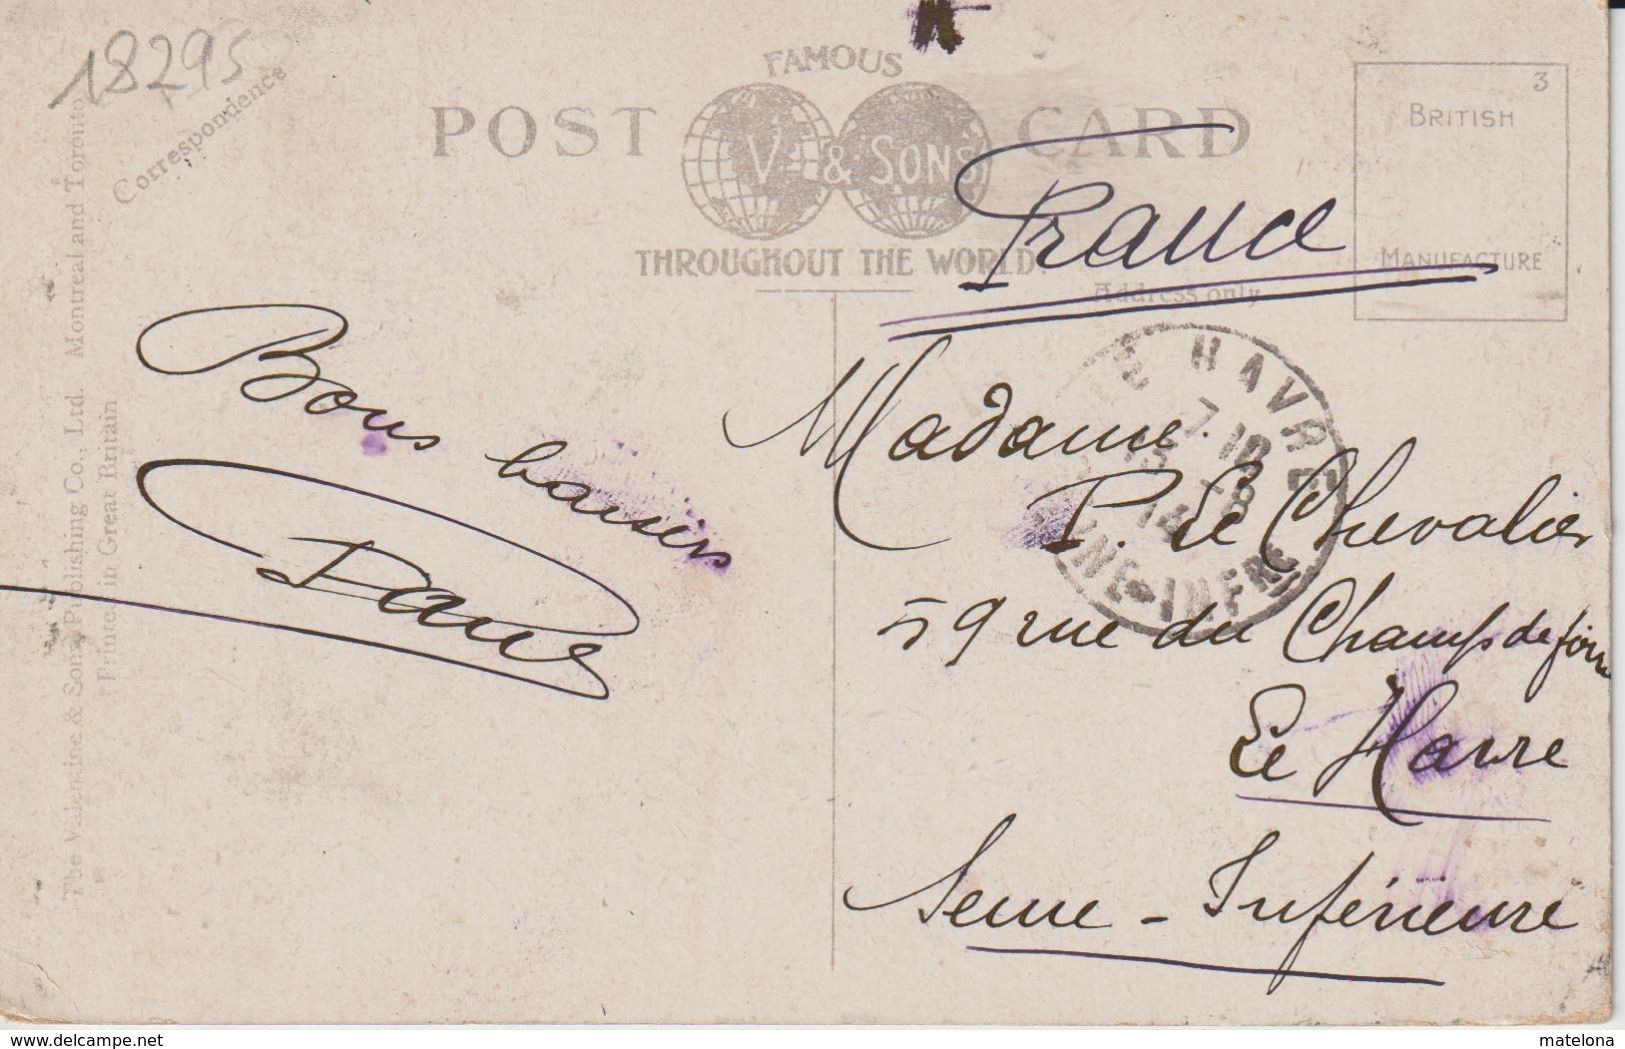 18295
Correspondence
FAMOUS
POST CARD
V & SONS
THROUGHOUT THE WORLD.
Address only
3
BRITISH
MANUFACTURE
The Valentine & Sons Publishing Co., Ltd. Montreal and Toronto
Printed in Great Britain
France
Bons baisers
LE HAVRE
7.10
SEINE-INFRE
Madame
P. Le Chevalier
59 rue du Champ de foire
Le Havre
Seine-Inférieure
www.delcampe.net
matelona